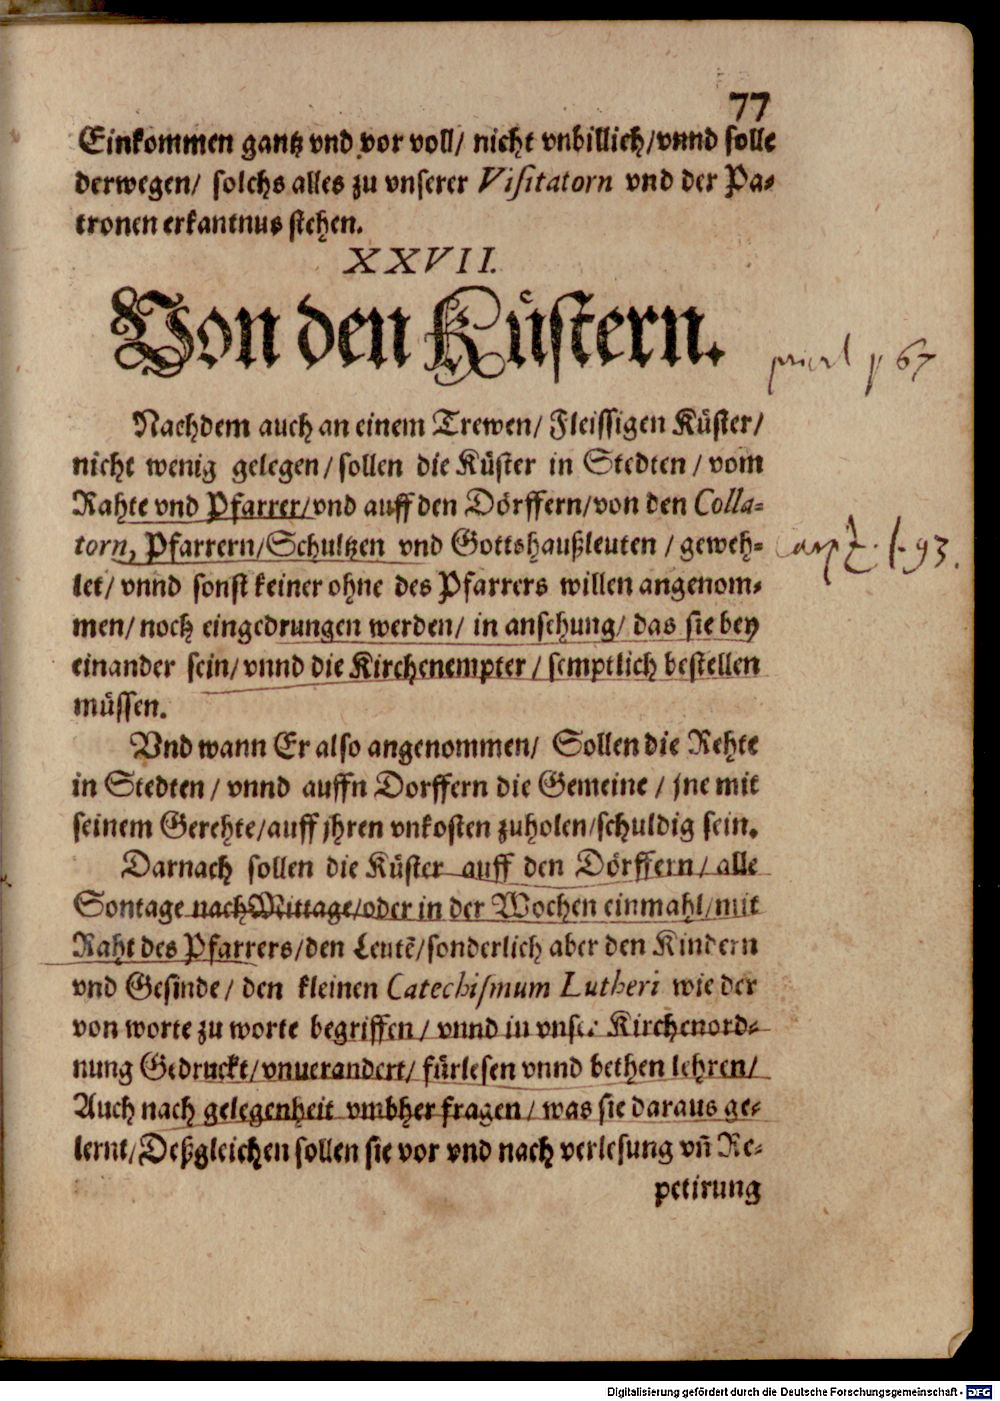 77
Einkommen gantz vnd vor voll/ nicht vnbillich/vnnd solle
derwegen/ solchs alles zu vnserer Visitatorn vnd der Pa-
tronen erkantnus stehen.
XXVII.
Von den Küstern.
Nachdem auch an einem Trewen/ Fleissigen Küster/
nicht wenig gelegen/ sollen die Küster in Stedten/ vom
Rahte vnd Pfarrer/vnd auff den Dörffern/von den Colla-
torn, Pfarrern/Schultzen vnd Gottshaußleuten/ geweh-
let/ vnnd sonst keiner ohne des Pfarrers willen angenom-
men/ noch eingedrungen werden/ in ansehung/ das sie bey
einander sein/ vnnd die Kirchenempter/ semptlich bestellen
müssen.
Vnd wann Er also angenommen/ Sollen die Rehte
in Stedten/ vnnd auffn Dorffern die Gemeine/ jne mit
seinem Gerehte/auff jhren vnkosten zuholen/schuldig sein.
Darnach sollen die Küster auff den Dörffern/ alle
Sontage nach Mittage/oder in der Wochen einmahl/mit
Raht des Pfarrers/den Leutē/sonderlich aber den Kindern
vnd Gesinde/ den kleinen Catechismum Lutheri wie der
von worte zu worte begriffen/ vnnd in vnser Kirchenord-
nung Gedruckt/vnuerandert/ fürlesen vnnd bethen lehren/
Auch nach gelegenheit vmbher fragen/ was sie daraus ge-
lernt/Deßgleichen sollen sie vor vnd nach verlesung vñ Re-
petirung
67
93.
Digitalisierung gefördert durch die Deutsche Forschungsgemeinschaft - DFG